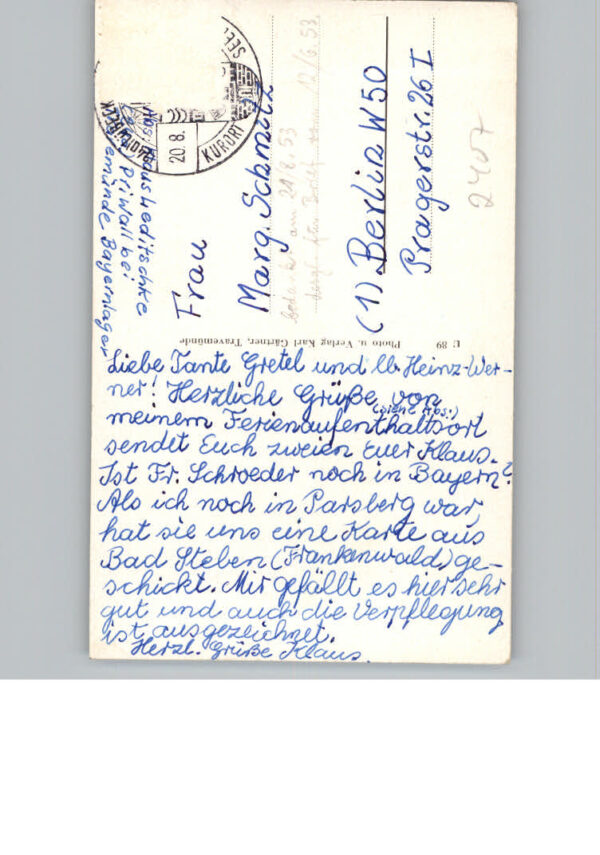 Liebe Tante Gretel und lb. Heinz-Wer-
ner! Herzliche Grüße von
meinem Ferienaufenthaltsort
(siehe Abs.)
sendet Euch zweien Euer Klaus.
Ist Fr. Schroeder noch in Bayern?
Als ich noch in Parsberg war,
hat sie uns eine Karte aus
Bad Steben (Frankenwald) ge-
schickt. Mir gefällt es hier sehr
gut und auch die Verpflegung
ist ausgezeichnet.
Herzl. Grüße Klaus.
Frau
Marg. Schmitz
(1) Berlin W 50
Pragerstr. 26 I
Abs. Klaus Leditschke
Priwall bei
Bayernlager
20.8.
KURORT
SEE
U 89 Photo u. Verlag Karl Gärtner, Travemünde
am 21.8.53
Brief vom 12/6.53
2407